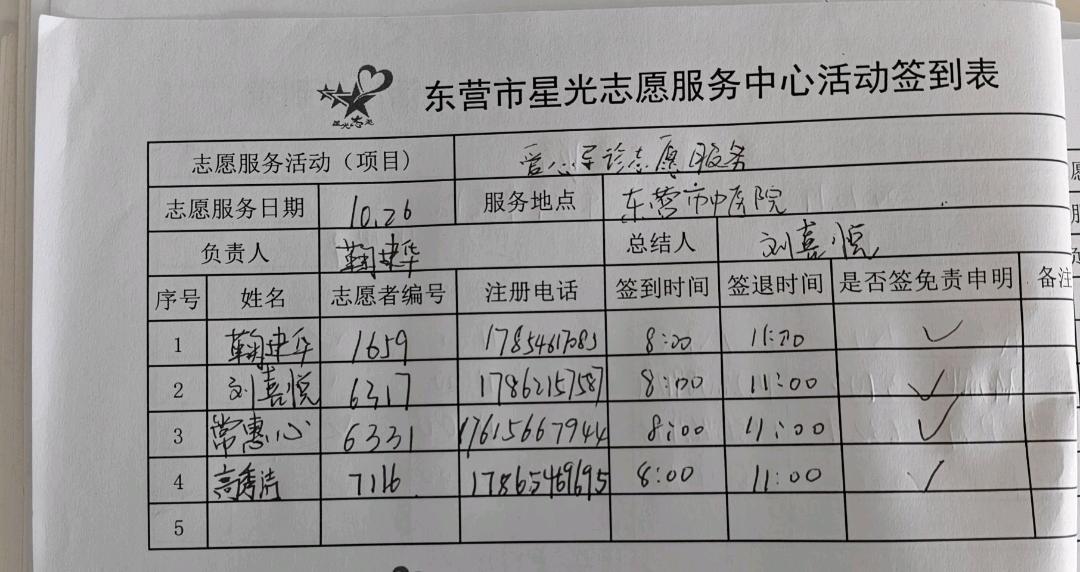 星光志愿
东营市星光志愿服务中心活动签到表
志愿服务活动（项目） 爱心导诊志愿服务
志愿服务日期 10.26 服务地点 东营市中医院
负责人 鞠建华 总结人 刘嘉悦
序号 姓名 志愿者编号 注册电话 签到时间 签退时间 是否签免责申明 备注
1 鞠建华 1659 8:00 11:00 ✓
2 刘嘉悦 6317 17862157587 8:00 11:00 ✓
3 常惠心 6331 17615667944 8:00 11:00 ✓
4 高秀洁 7116 17865469695 8:00 11:00 ✓
5